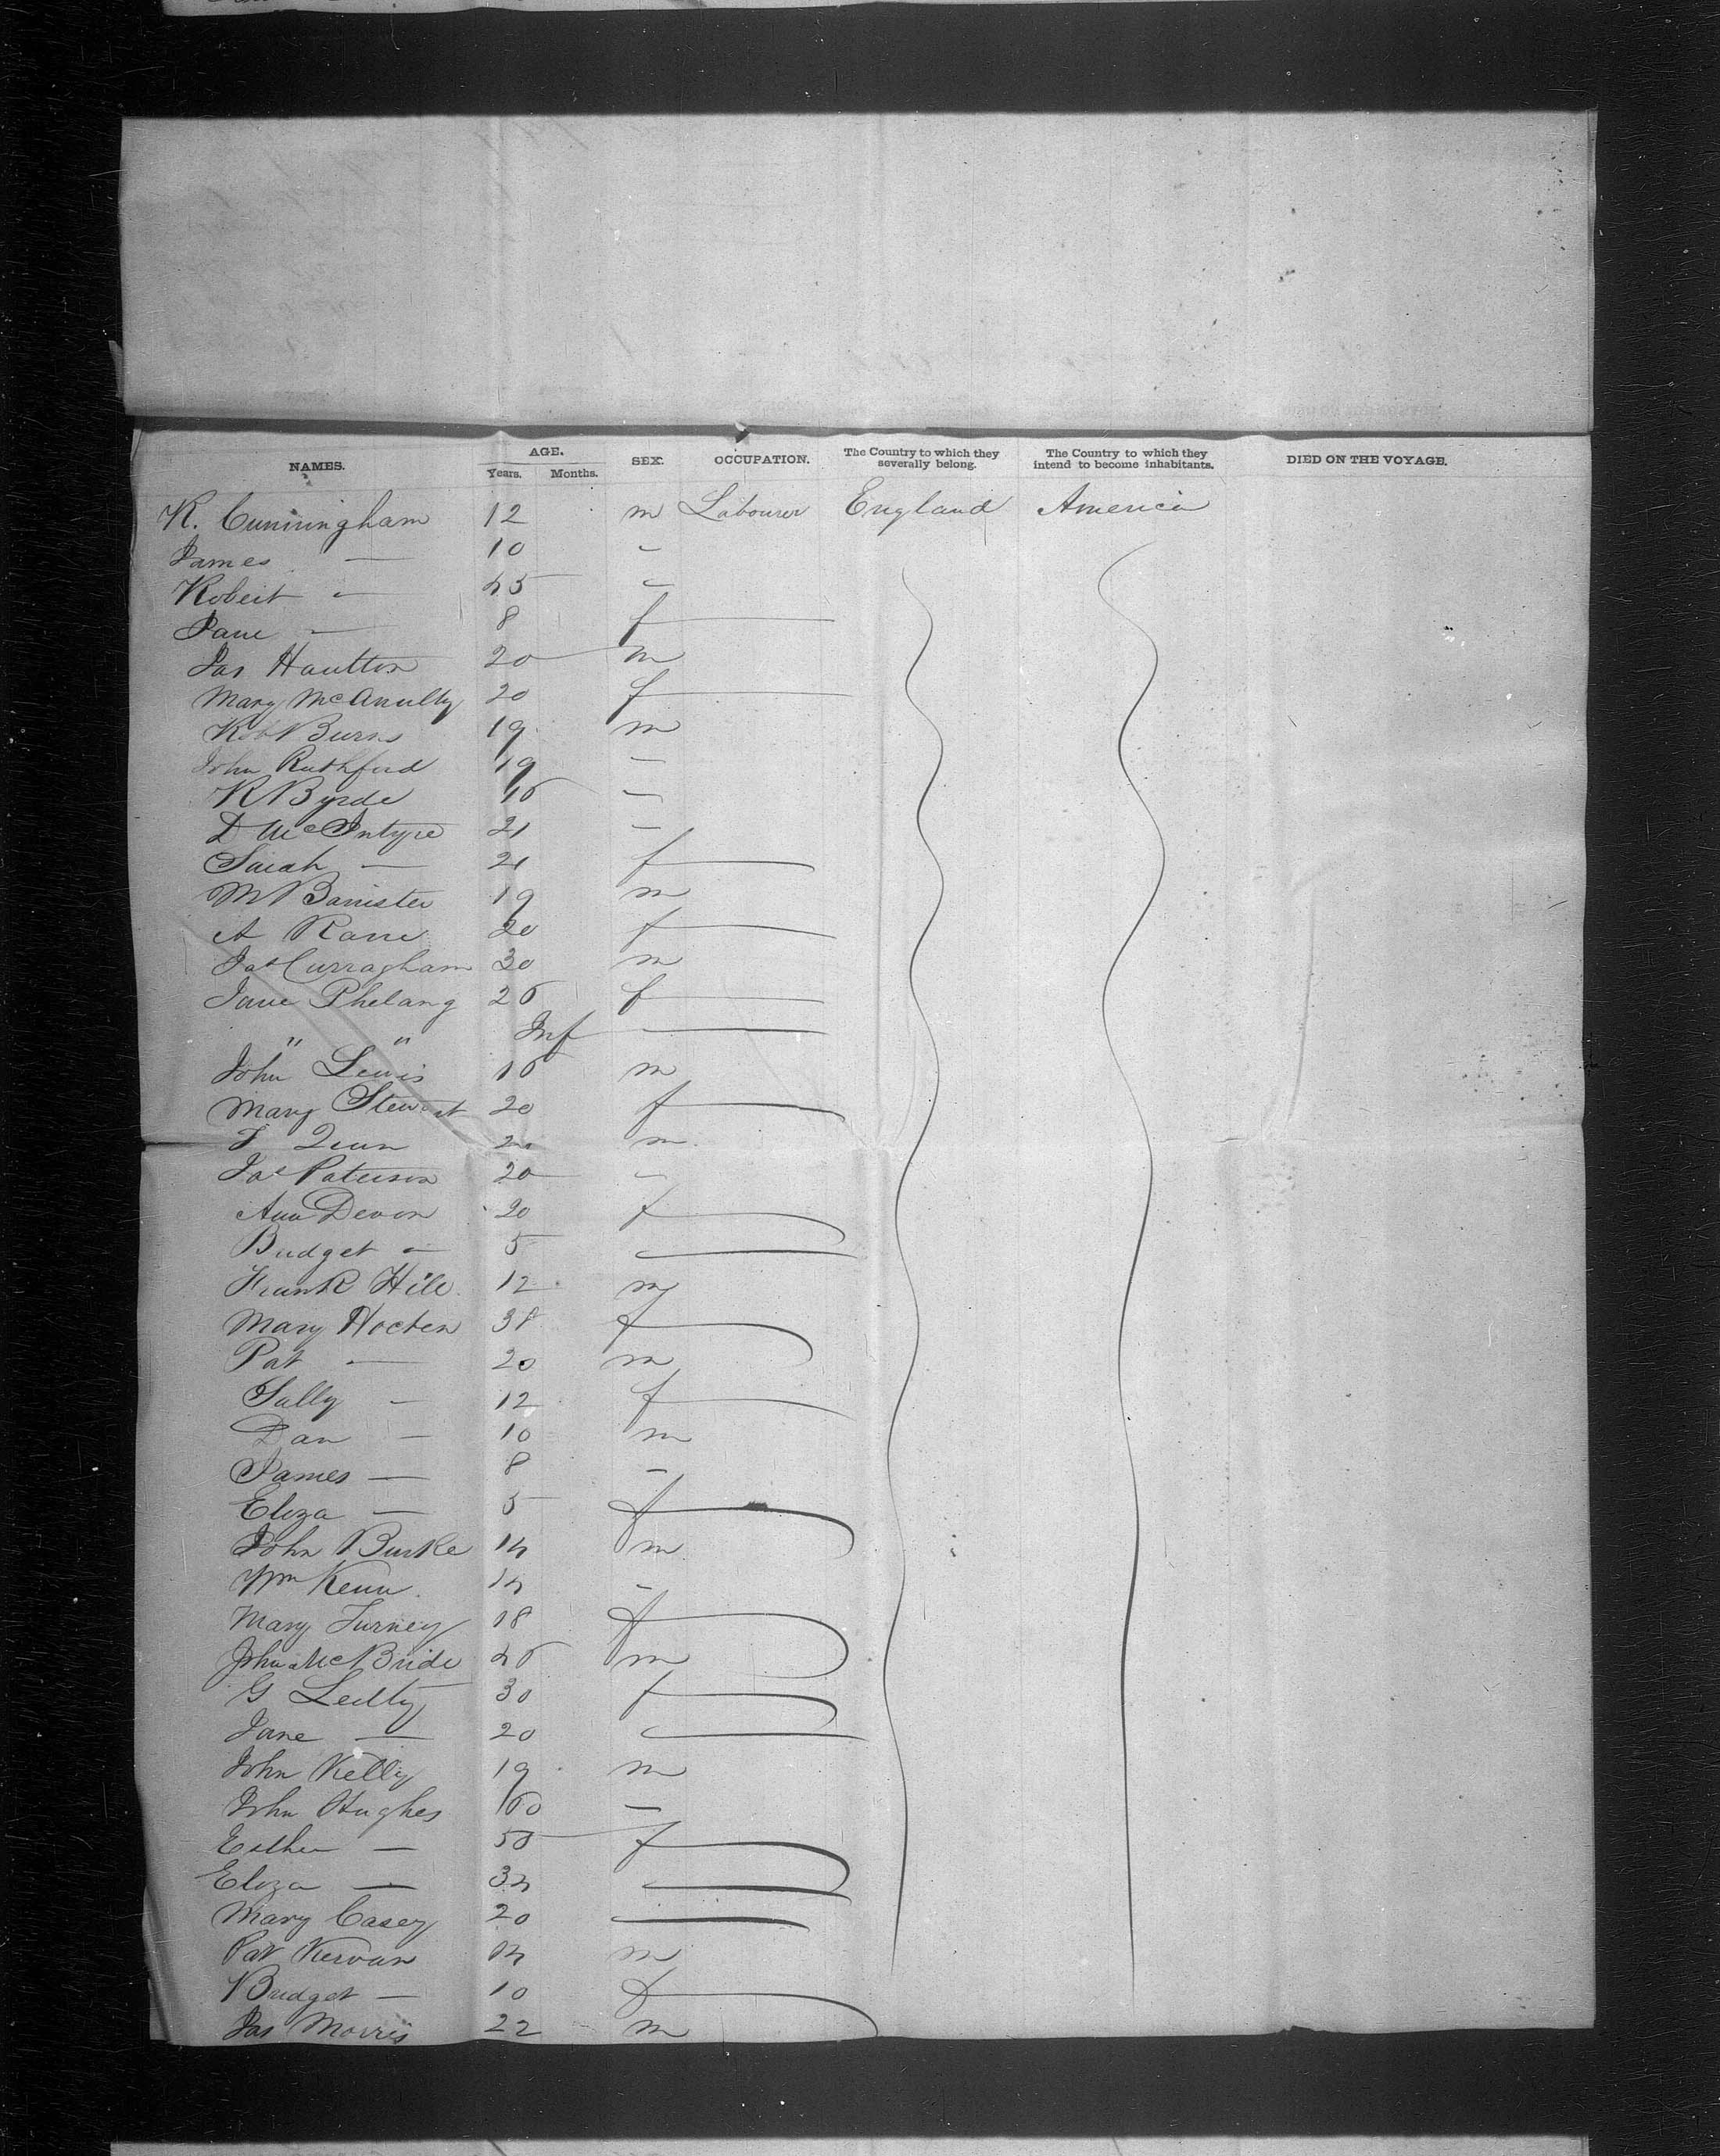 NAMES. AGE. Years. Months. SEX. OCCUPATION. The Country to which they severally belong. The Country to which they intend to become inhabitants. DIED ON THE VOYAGE.
K. Cunningham 12 m Labourer England America
James — 10 -
Robert — 45 -
Jane — 8 f
Jas Haulton 20 m
Mary McAnulty 20 f
Rob Burns 19 m
John Ruthford 19 -
R Byrde 16 -
D McIntyre 21 -
Sarah — 21 f
M Banister 19 m
A Kane 20 f
Jas Curragham 30 m
Jane Phelang 26 f
" " Inf
John Lewis 16 m
Mary Stewart 20 f
Quin 20 m
Jas Paterson 20 -
Ann Devon 20 f
Bridget — 5
Frank Hill 12 m
Mary Hocten 38 f
Pat — 20 m
Sally — 12 f
Dan — 10 m
James — 8 -
Eliza — 5 f
John Burke 14 m
Wm Kenn 14 -
Mary Turney 18 f
John McBride 26 m
G Leilty 30 f
Jane — 20
John Kelly 19 m
John Hughes 60 -
Esther — 50 f
Eliza — 34
Mary Casey 20
Pat Kirvan 14 m
Bridget — 10 f
Jas Morris 22 m